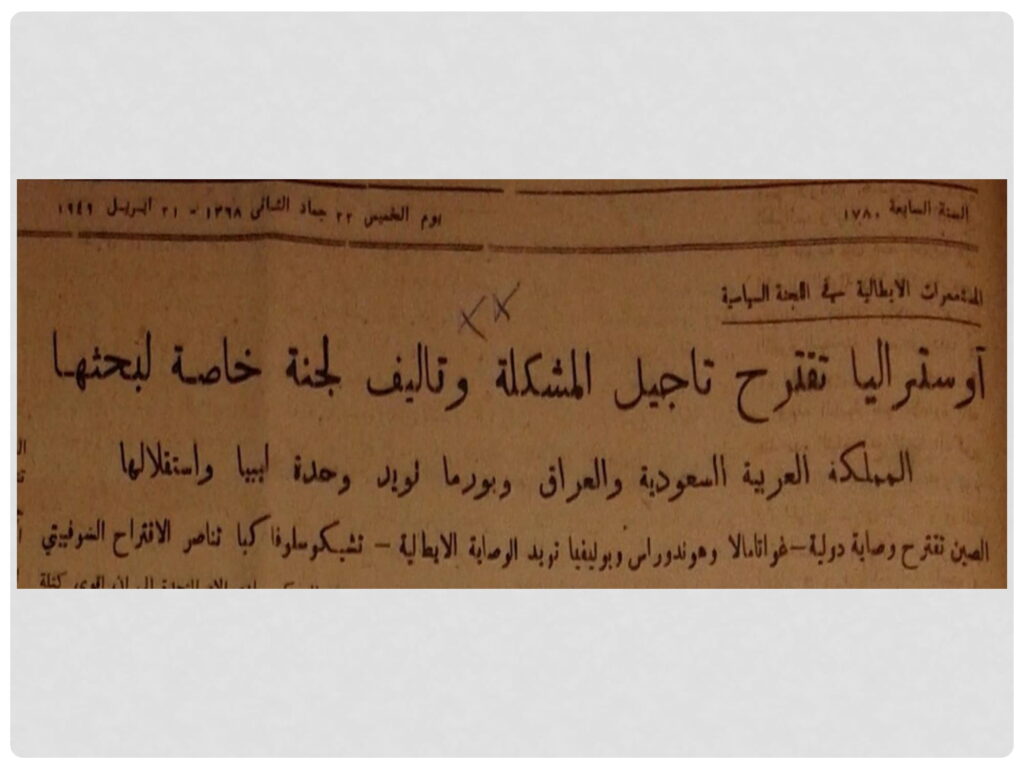 السنة السابعة ١٧٨٠ يوم الخميس ٢٢ جماد الثانى ١٣٦٨ - ٢١ ابريل ١٩٤٩
المستعمرات الايطالية في اللجنة السياسية
أوستراليا تقترح تاجيل المشكلة وتاليف لجنة خاصة لبحثها
المملكة العربية السعودية والعراق وبورما تويد وحدة ليبيا واستقلالها
الصين تقترح وصاية دولية - غواتامالا وهوندوراس وبوليفيا تويد الوصاية الايطالية - تشيكوسلوفاكيا تناصر الاقتراح السوفييتي